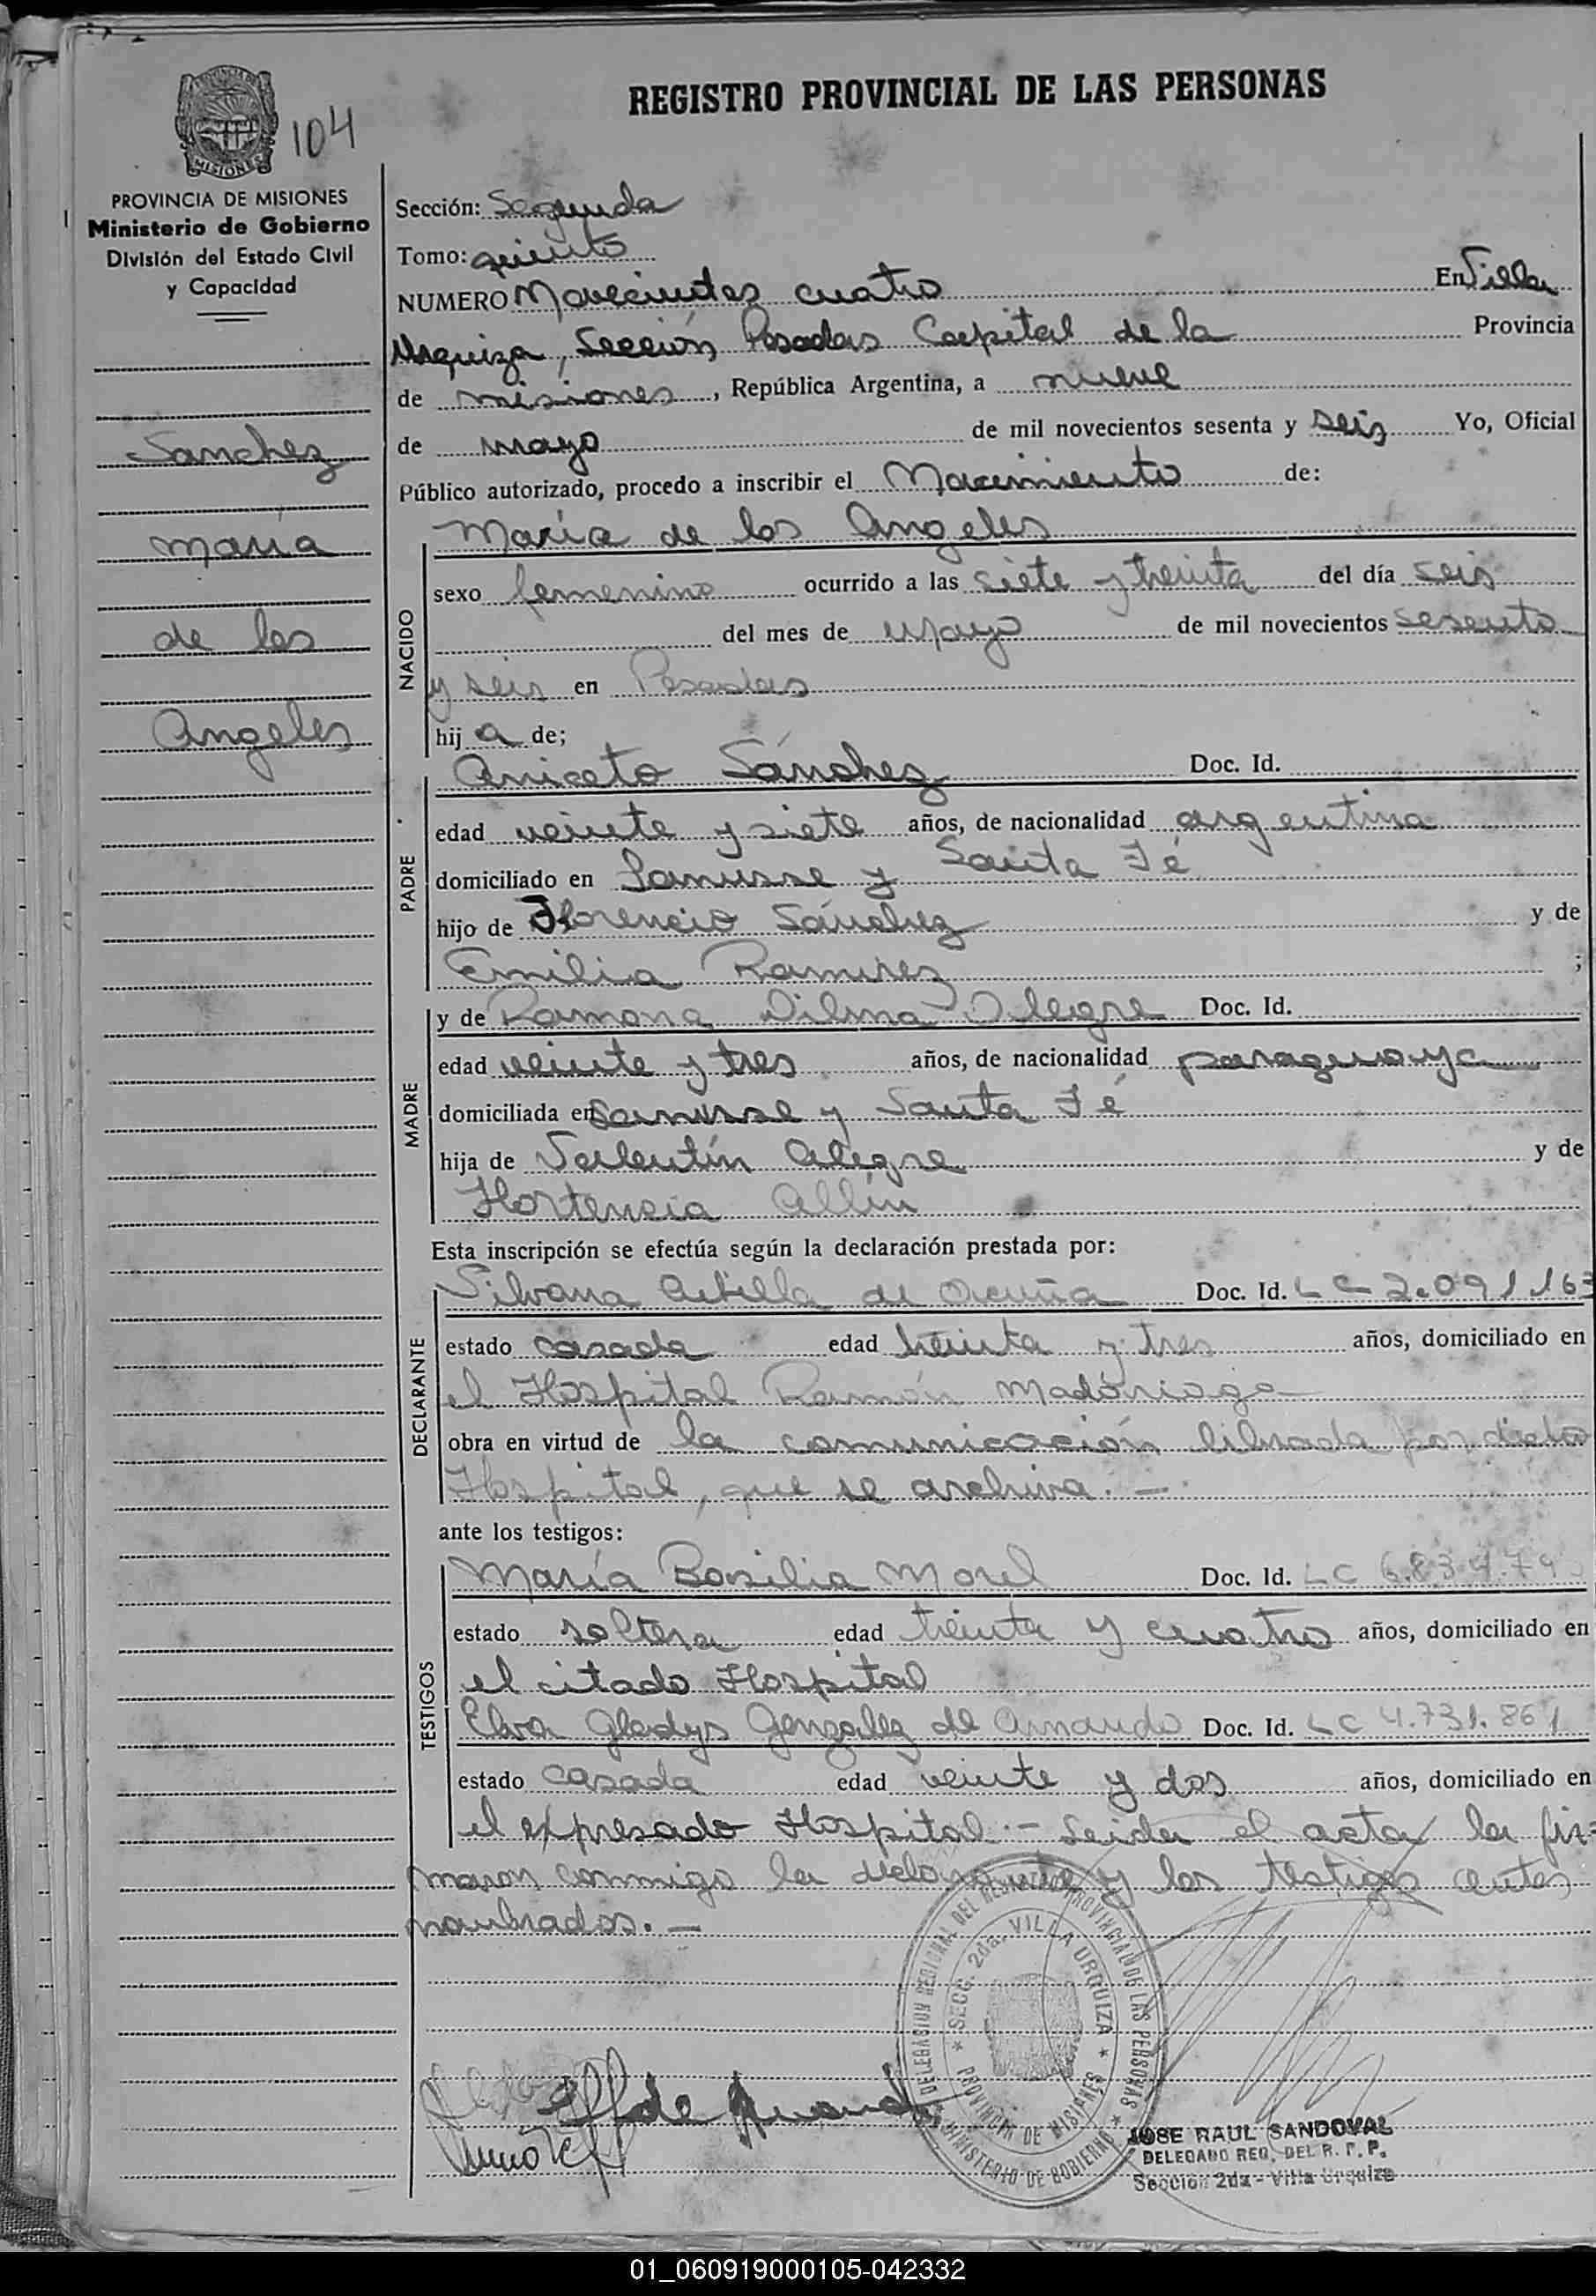 REGISTRO PROVINCIAL DE LAS PERSONAS
MISIONES
104
PROVINCIA DE MISIONES
Ministerio de Gobierno
División del Estado Civil
y Capacidad
Sanchez
maria
de los
Angeles
Sección: Segunda
Tomo: quinto
NUMERO Novecientos cuatro En Villa
Urquiza, Sección Posadas Capital de la Provincia
de misiones, República Argentina, a nueve
de mayo de mil novecientos sesenta y seis Yo, Oficial
Público autorizado, procedo a inscribir el Nacimiento de:
NACIDO
María de los Angeles
sexo femenino ocurrido a las siete y treinta del día seis
del mes de mayo de mil novecientos sesenta
y seis en Posadas
hij a de;
PADRE
Aniceto Sánchez Doc. Id.
edad veinte y siete años, de nacionalidad argentina
domiciliado en Lanusse y Santa Fé
hijo de Florencio Sánchez y de
Emilia Ramirez ;
MADRE
y de Ramona Dilma Alegre Doc. Id.
edad veinte y tres años, de nacionalidad paraguaya
domiciliada en Lanusse y Santa Fé
hija de Valentín Alegre y de
Hortencia
Esta inscripción se efectúa según la declaración prestada por:
DECLARANTE
Silvana de Acuña Doc. Id. LC 2.091.163
estado casada edad treinta y tres años, domiciliado en
el Hospital Ramón Madariaga
obra en virtud de la comunicación librada por dicho
Hospital, que se archiva. —
ante los testigos:
TESTIGOS
María Basilia Morel Doc. Id. LC
estado soltera edad treinta y cuatro años, domiciliado en
el citado Hospital
Elva Gladys Gonzalez de Arnando Doc. Id. LC 4.731.861
estado casada edad veinte y dos años, domiciliado en
el expresado Hospital.- Leida el acta la fir=
maron conmigo la declarante y los testigos antes
nombrados. —
DELEGACION REGIONAL DEL REGISTRO PROVINCIAL DE LAS PERSONAS
* SECC. 2da. VILLA URQUIZA *
PROVINCIA DE MISIONES
* MINISTERIO DE GOBIERNO *
JOSE RAUL SANDOVAL
DELEGADO REG. DEL R. P. P.
Sección 2da - Villa Urquiza
01_060919000105-042332